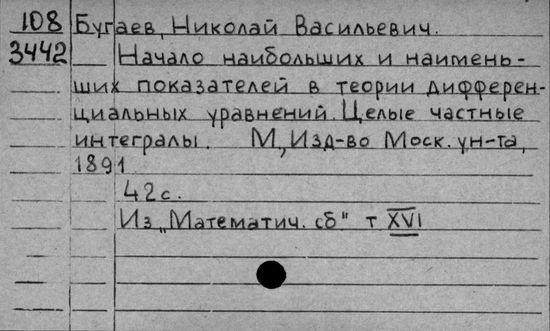 108 Бугаев, Николай Васильевич.
3442 Начало наибольших и наимень-
ших показателей в теории дифферен-
циальных уравнений. Целые частные
интегралы. М., Изд-во Моск. ун-та,
1891
42 с.
Из „Математич. сб" т XVI